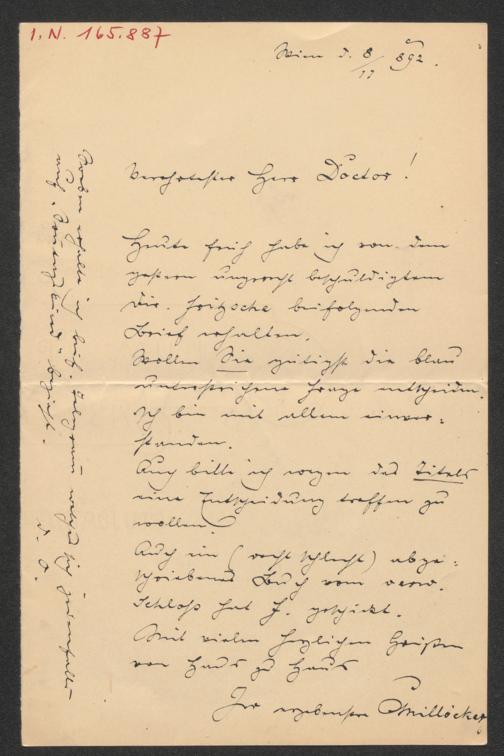 I. N. 165.887
Wien d. 8/11 892.
Verehrtester Herr Doctor!
Heute früh habe ich von dem
gestern ungerecht beschuldigtem
Dir. Fritzsche beifolgenden
Brief erhalten.
Wollen Sie gütigst die blau
unterstrichene Frage entscheiden.
Ich bin mit allem einver-
standen.
Auch bitte ich wegen des Titels
eine Entscheidung treffen zu
wollen!
Auch ein (recht schlecht) abge-
schriebenes Buch vom verw.
Schloß hat F. geschickt.
Mit vielen herzlichen Grüßen
von Haus zu Haus
Ihr ergebenster CMillöcker
Soeben erhalte ich beif. Telegramm welches sich jedenfalls
auf „Sonntagskind“ bezieht.
d. O.